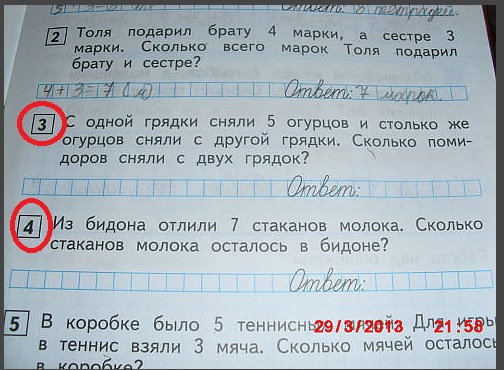 2 Толя подарил брату 4 марки, а сестре 3
марки. Сколько всего марок Толя подарил
брату и сестре?
4+3=7 (м) Ответ: 7 марок.
3 С одной грядки сняли 5 огурцов и столько же
огурцов сняли с другой грядки. Сколько поми-
доров сняли с двух грядок?
Ответ:
4 Из бидона отлили 7 стаканов молока. Сколько
стаканов молока осталось в бидоне?
Ответ:
5 В коробке было 5 теннисных мячей. Для игры
29/3/2013 21:58
в теннис взяли 3 мяча. Сколько мячей осталось
в коробке?